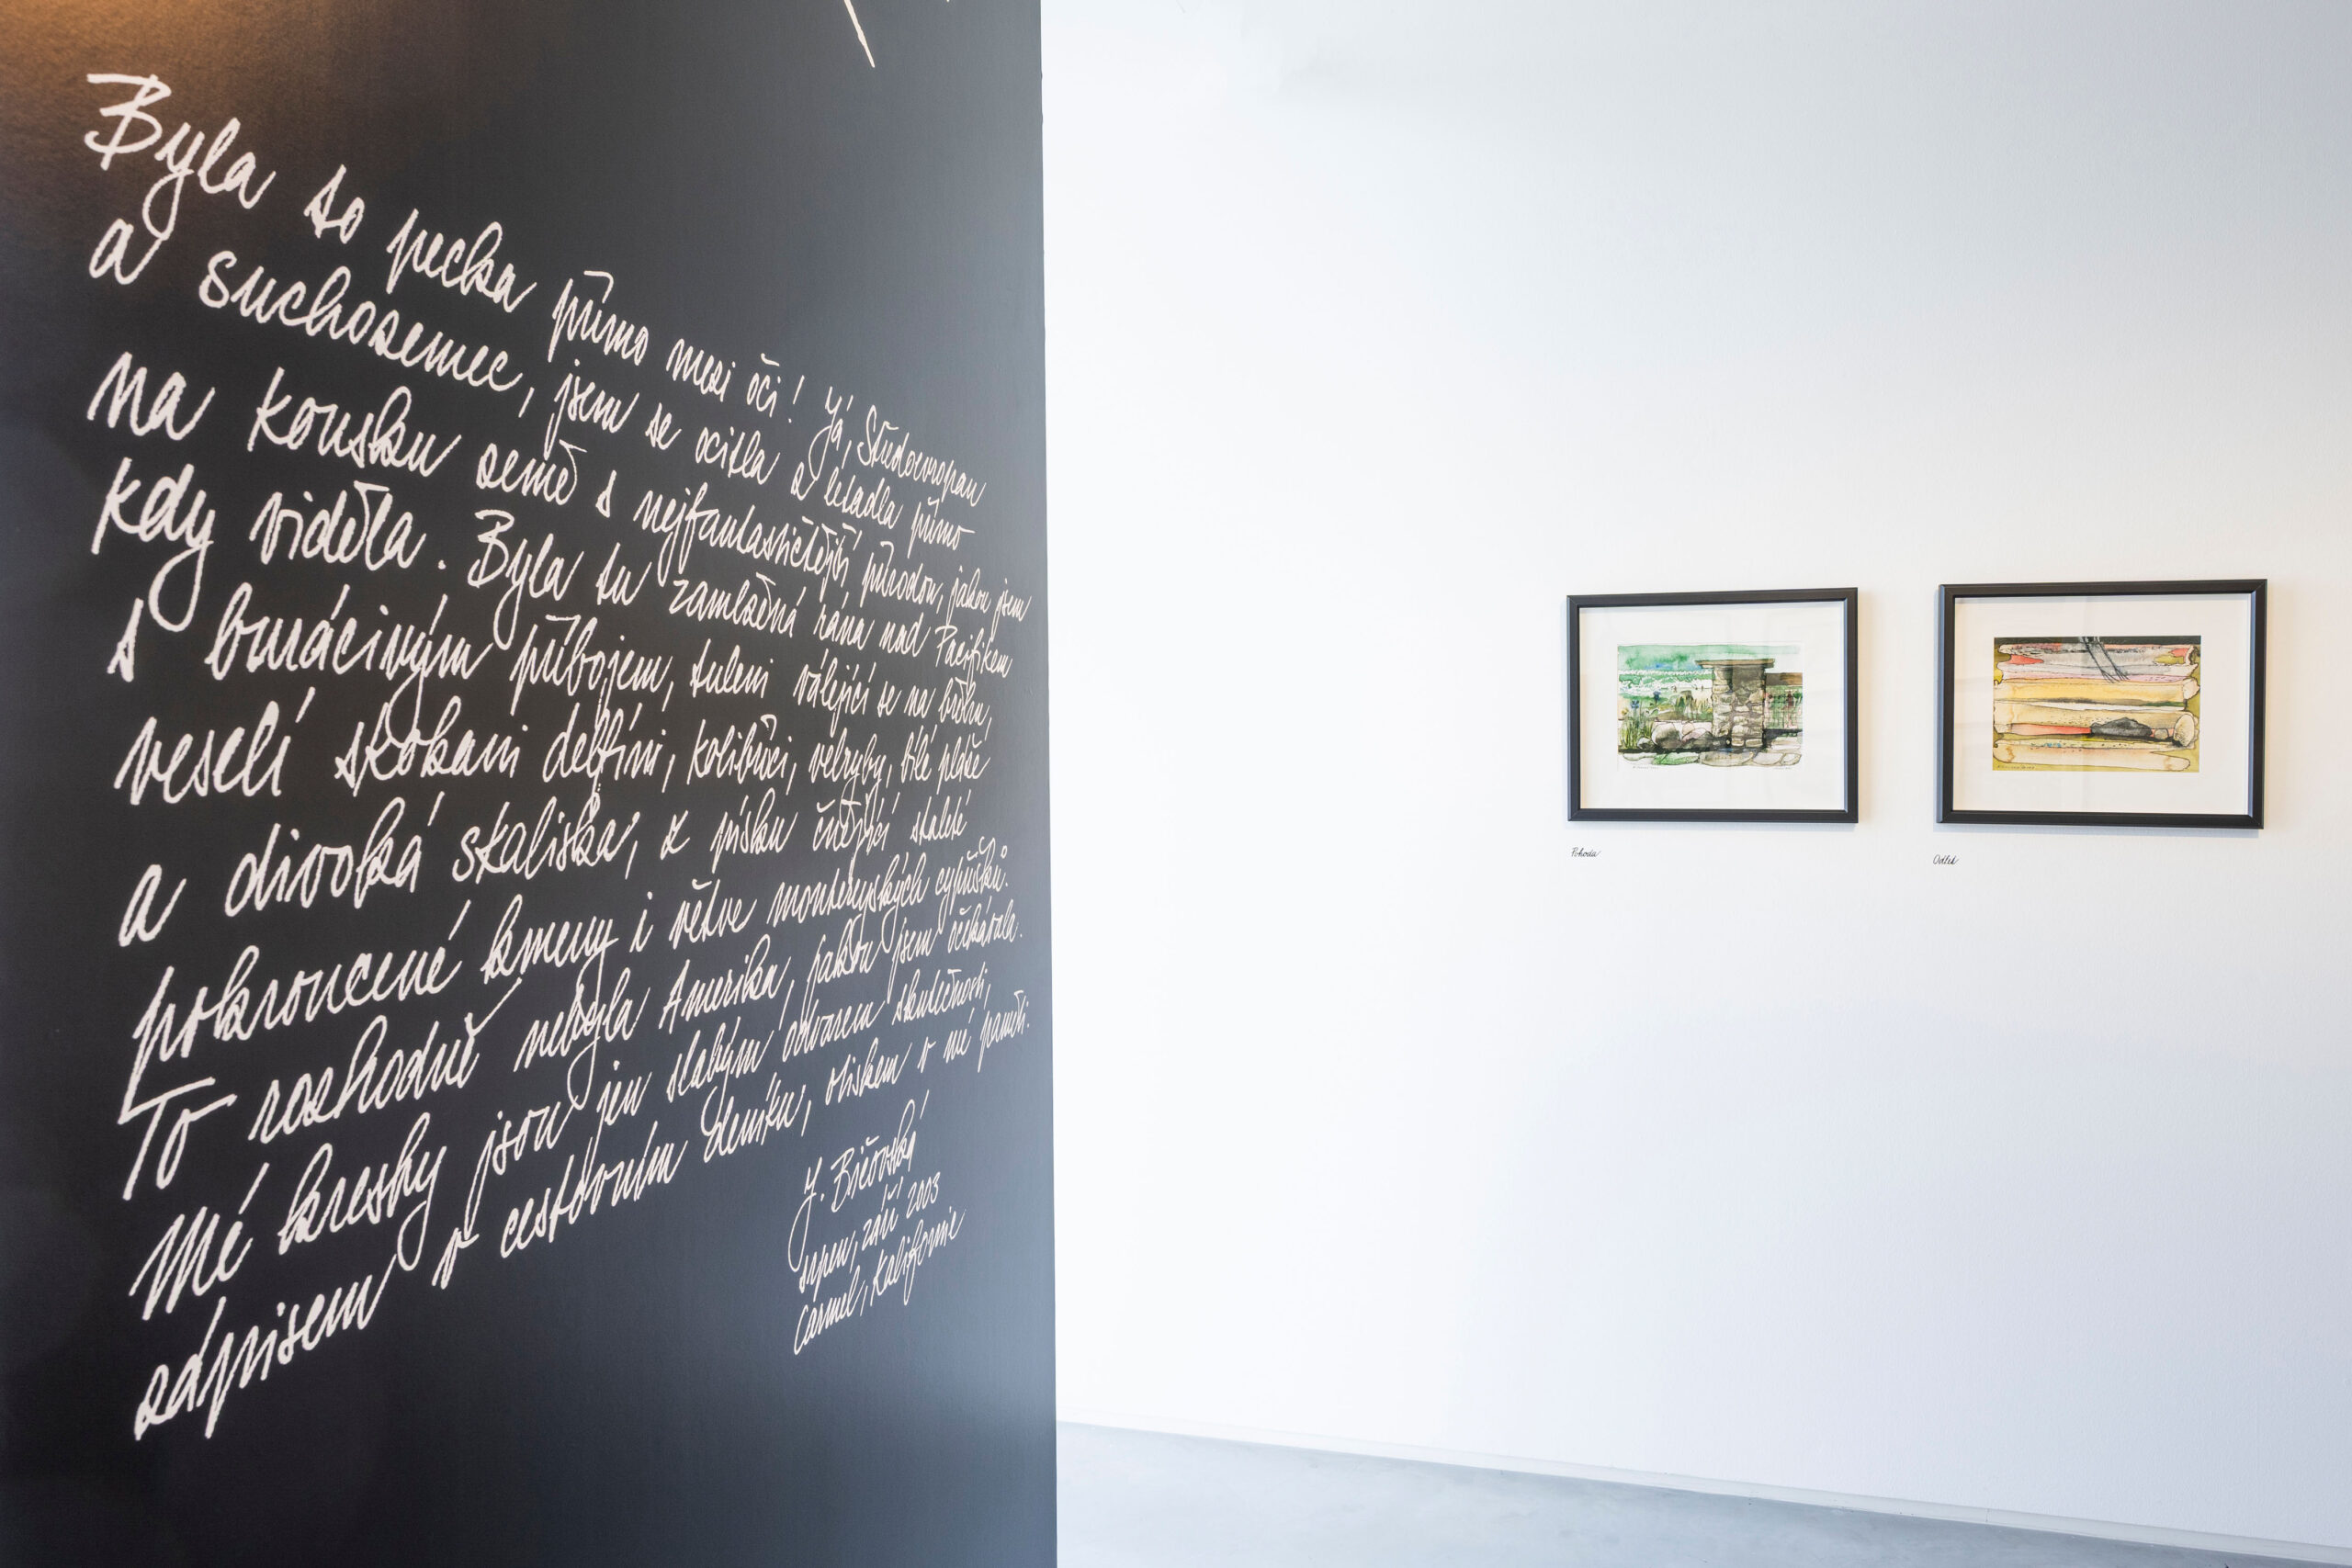 Byla to pecka přímo mezi oči! Já, Středoevropan
a suchozemec, jsem se ocitla z letadla přímo
na kousku země s nejfantastičtější přírodou, jakou jsem
kdy viděla. Byla tu zamlžená rána nad Pacifikem
s burácivým příbojem, tuleni válející se na břehu,
veselí skokani delfíni, kolibříci, velryby, bílé pláže
a divoká skaliska, z písku čnějící staleté
pokroucené kmeny i větve monterejských cypřišků.
To rozhodně nebyla Amerika, jakou jsem očekávala.
Mé kresby jsou jen slabým odvarem skutečnosti,
zápisem v cestovním deníku, otiskem v mé paměti.
J. Bičovská
srpen, září 2003
Carmel, Kalifornie
Pohoda
Odliv